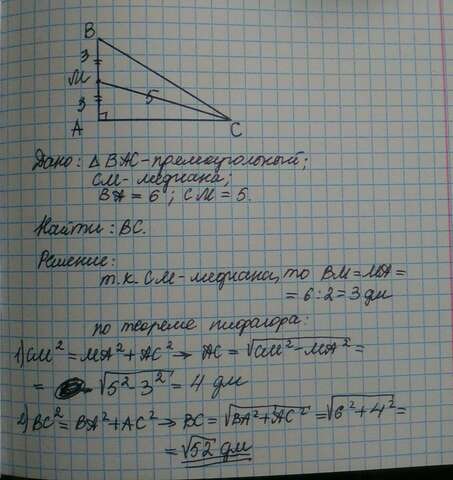 B
3
M
3
5
A
C
Дано: △ BAC - прямоугольный;
CM - медиана;
BA = 6 ; CM = 5.
Найти: BC.
Решение:
т.к. CM - медиана, то BM = MA =
= 6 : 2 = 3 дм
по теореме пифагора:
1) CM² = MA² + AC² → AC = √CM² - MA² =
= √5² - 3² = 4 дм
2) BC² = BA² + AC² → BC = √BA² + AC² = √6² + 4² =
= √52 дм